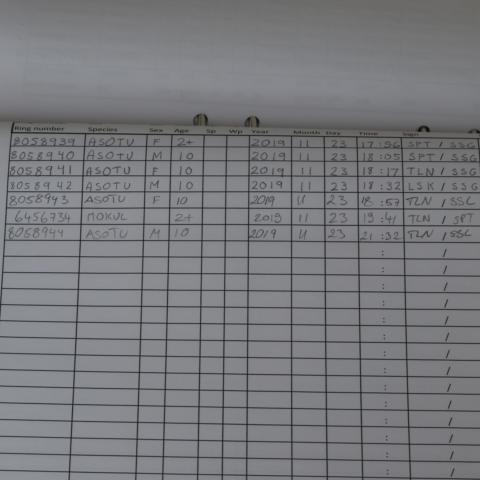 Ring number Species Sex Age Sp Wp Year Month Day Time Sign
8058939 ASOTU F 2+ 2019 11 23 17:56 SPT / SSG
8058940 ASOTU M 10 2019 11 23 18:05 SPT / SSG
8058941 ASOTU F 10 2019 11 23 18:17 TLN / SSG
8058942 ASOTU M 10 2019 11 23 18:32 LSK / SSG
8058943 ASOTU F 10 2019 11 23 18:57 TLN / SSG
6456734 MOKUL 2+ 2019 11 23 19:41 TLN / SPT
8058944 ASOTU M 10 2019 11 23 21:32 TLN / SSG
: /
: /
: /
: /
: /
: /
: /
: /
: /
: /
: /
: /
: /
: /